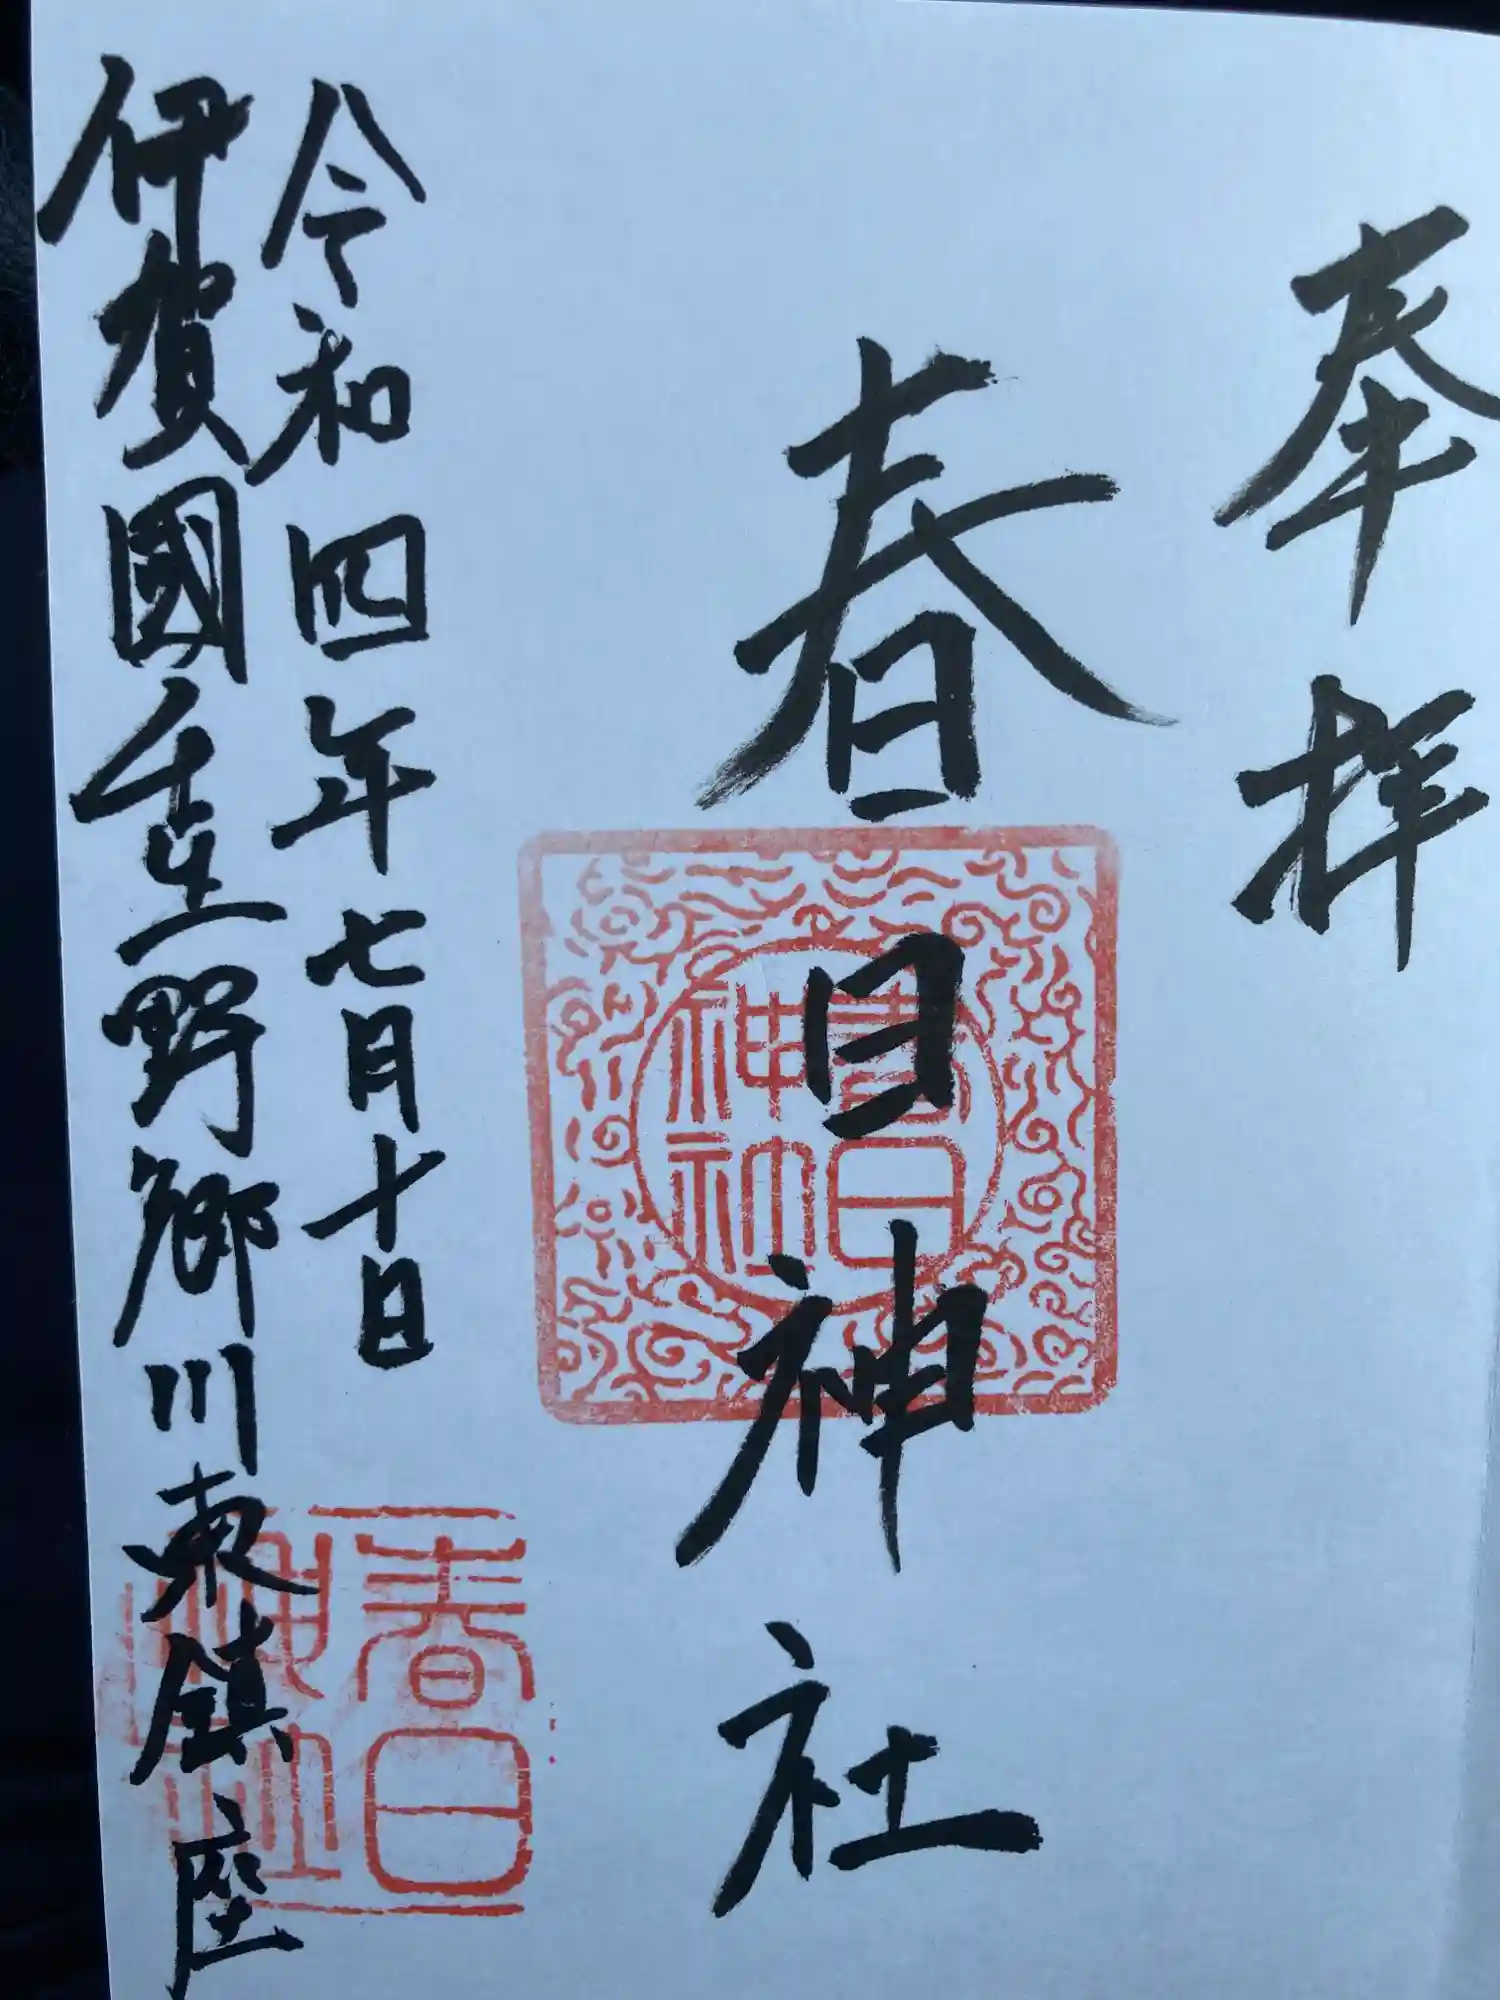 奉拝
春日神社
春日
神社
令和四年七月十日
伊賀國壬生野郷川東鎮座
春日
神社